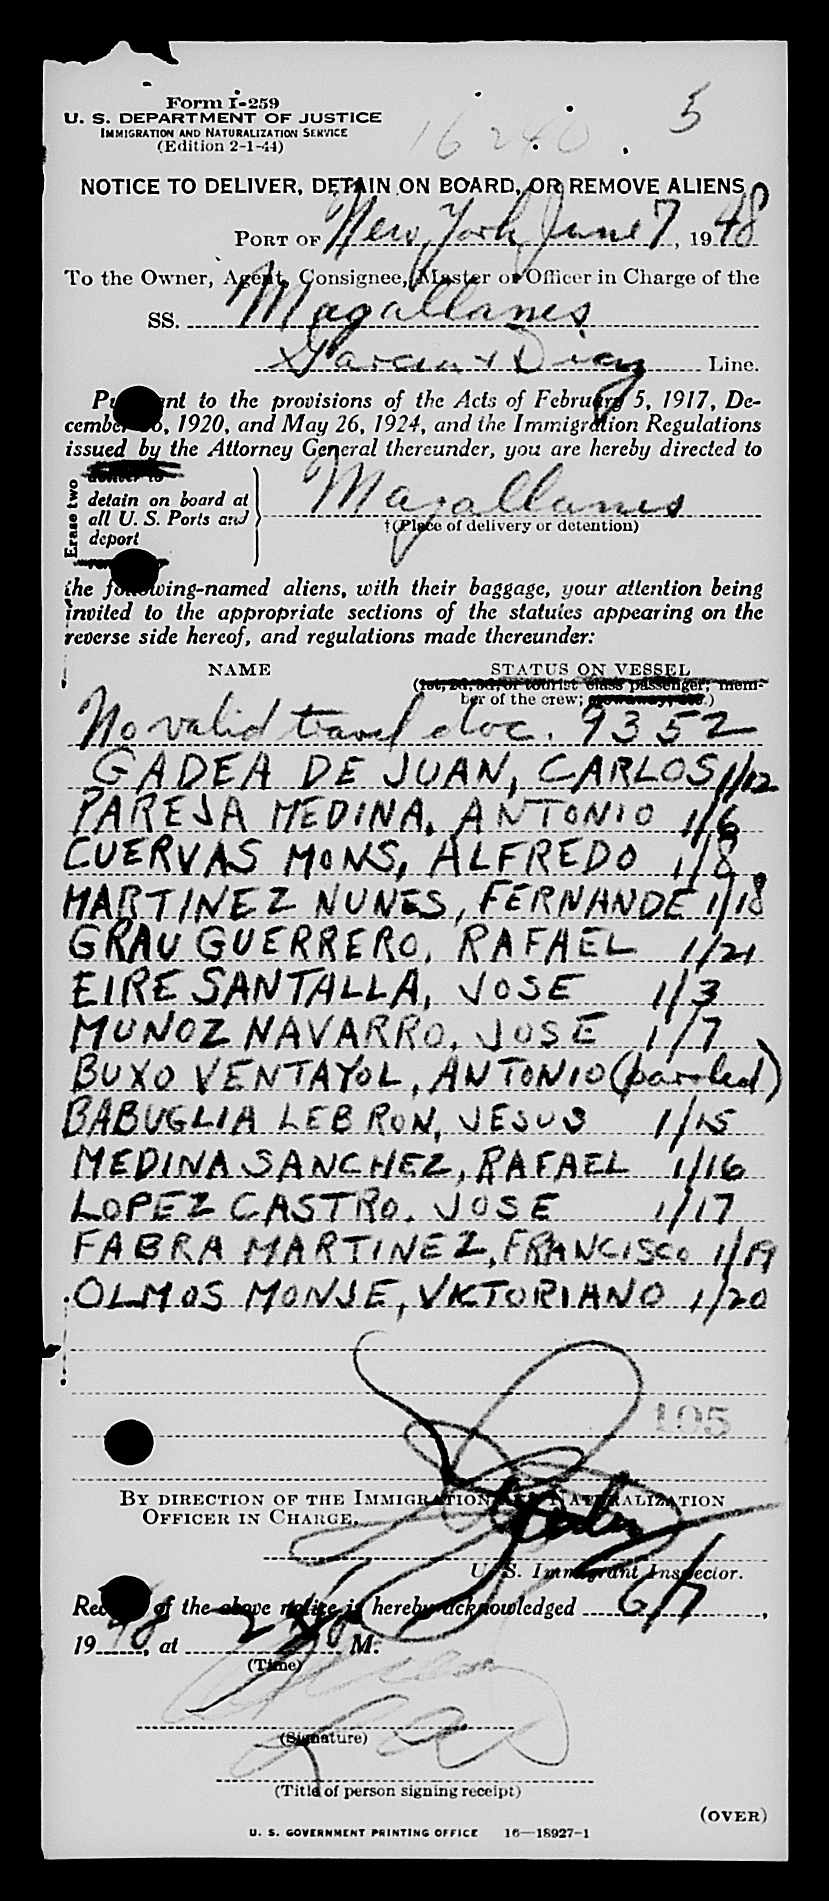 Form I-259
U. S. DEPARTMENT OF JUSTICE
IMMIGRATION AND NATURALIZATION SERVICE
(Edition 2-1-44)
16240
5
NOTICE TO DELIVER, DETAIN ON BOARD, OR REMOVE ALIENS
PORT OF New York, June 7, 1948
To the Owner, Agent, Consignee, Master or Officer in Charge of the
SS. Magallanes
Garcia & Diaz Line.
Pursuant to the provisions of the Acts of February 5, 1917, De-
cember 26, 1920, and May 26, 1924, and the Immigration Regulations
issued by the Attorney General thereunder, you are hereby directed to
Erase two
deliver to
detain on board at
all U. S. Ports and
deport
Magallanes
†(Place of delivery or detention)
the following-named aliens, with their baggage, your attention being
invited to the appropriate sections of the statutes appearing on the
reverse side hereof, and regulations made thereunder:
NAME STATUS ON VESSEL
(1st, 2d, 3d, or tourist class passenger; mem-
ber of the crew; stowaway, etc.)
No valid travel doc. 9352
GADEA DE JUAN, CARLOS 1/12
PAREJA MEDINA, ANTONIO 1/6
CUERVAS MONS, ALFREDO 1/8
MARTINEZ NUNES, FERNANDE 1/18
GRAU GUERRERO, RAFAEL 1/21
EIRE SANTALLA, JOSE 1/3
MUNOZ NAVARRO, JOSE 1/7
BUXO VENTAYOL, ANTONIO (paroled)
BABUGLIA LEBRON, JESUS 1/15
MEDINA SANCHEZ, RAFAEL 1/16
LOPEZ CASTRO, JOSE 1/17
FABRA MARTINEZ, FRANCISCO 1/19
OLMOS MONJE, VICTORIANO 1/20
105
BY DIRECTION OF THE IMMIGRATION AND NATURALIZATION
OFFICER IN CHARGE.
U. S. Immigrant Inspector.
Receipt of the above notice is hereby acknowledged 6/7,
1948, at M.
(Time)
(Signature)
(Title of person signing receipt)
(OVER)
U. S. GOVERNMENT PRINTING OFFICE 16—18927-1